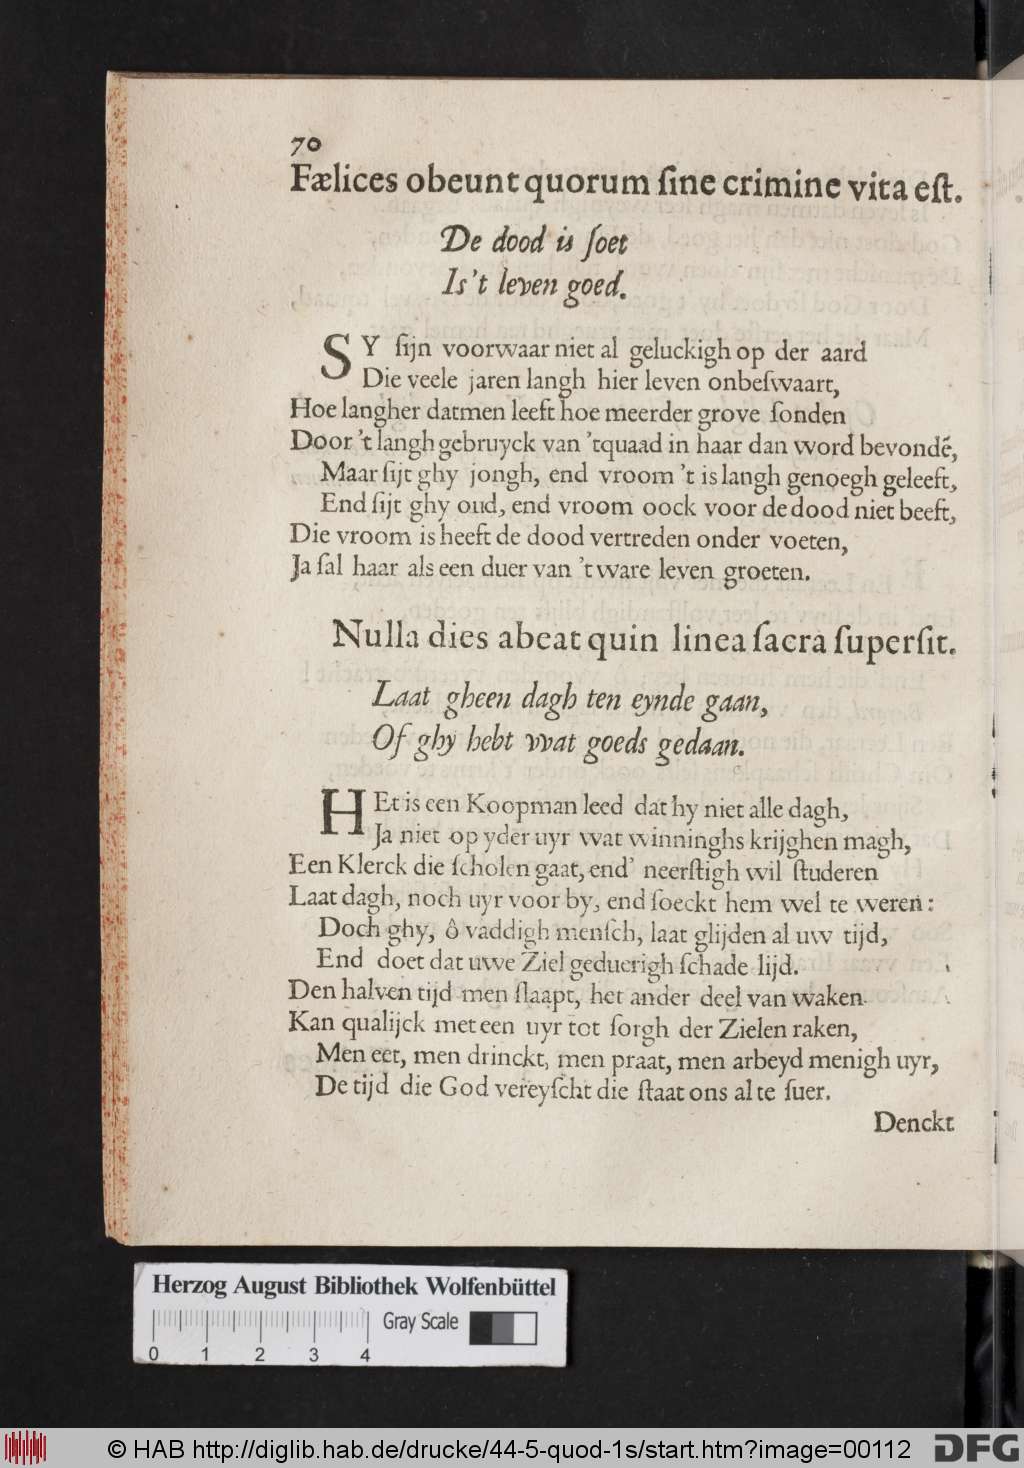 70
Fælices obeunt quorum ſine crimine vita eſt.
De dood is ſoet
Is't leven goed.
SY ſijn voorwaar niet al geluckigh op der aard
Die veele jaren langh hier leven onbeſwaart,
Hoe langher datmen leeft hoe meerder grove ſonden
Door 't langh gebruyck van 'tquaad in haar dan word bevondē,
Maar ſijt ghy jongh, end vroom 't is langh genoegh geleeft,
End ſijt ghy oud, end vroom oock voor de dood niet beeft,
Die vroom is heeft de dood vertreden onder voeten,
Ja ſal haar als een duer van 't ware leven groeten.
Nulla dies abeat quin linea ſacra ſuperſit.
Laat gheen dagh ten eynde gaan,
Of ghy hebt vvat goeds gedaan.
HEt is een Koopman leed dat hy niet alle dagh,
Ja niet op yder uyr wat winninghs krijghen magh,
Een Klerck die ſcholen gaat, end' neerſtigh wil ſtuderen
Laat dagh, noch uyr voor by, end ſoeckt hem wel te weren:
Doch ghy, ô vaddigh menſch, laat glijden al uw tijd,
End doet dat uwe Ziel geduerigh ſchade lijd.
Den halven tijd men ſlaapt, het ander deel van waken
Kan qualijck met een uyr tot ſorgh der Zielen raken,
Men eet, men drinckt, men praat, men arbeyd menigh uyr,
De tijd die God vereyſcht die ſtaat ons al te ſuer.
Denckt
Herzog August Bibliothek Wolfenbüttel
Gray Scale
0 1 2 3 4
© HAB http://diglib.hab.de/drucke/44-5-quod-1s/start.htm?image=00112
DFG